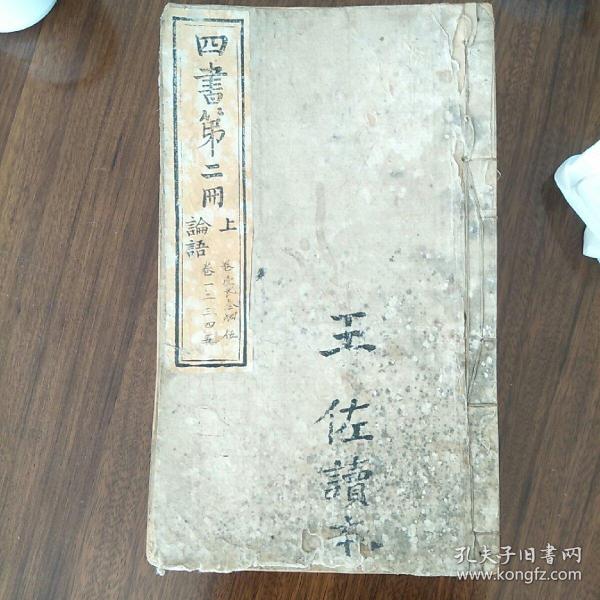 四書第二冊
上
論語
卷一二三四五
王佐讀本
孔夫子旧書网
www.kongfz.com